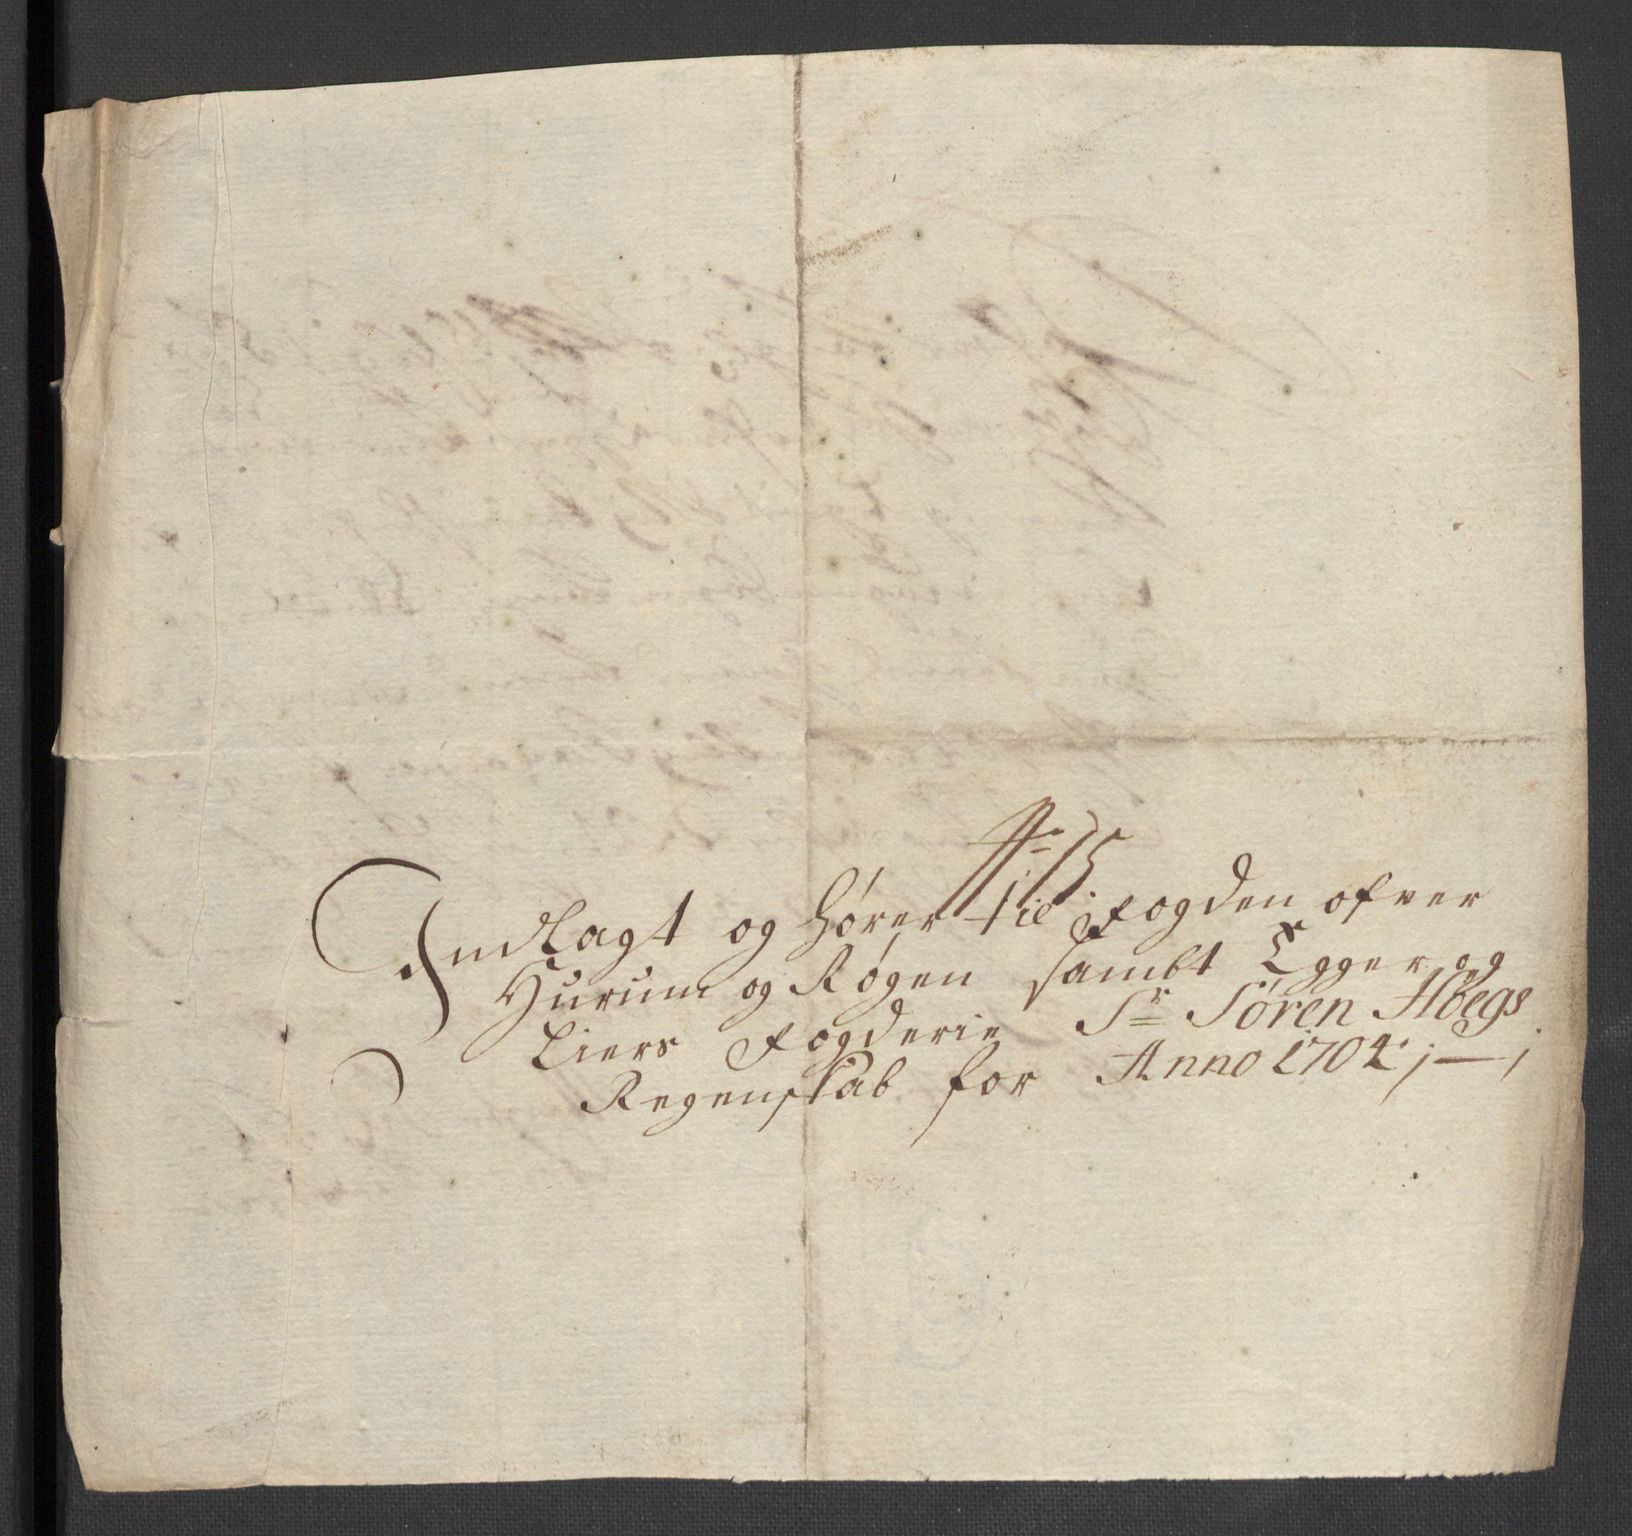 No 15
Indlagt og hører til fogden ofver
Hurum og Røgen sambt Egger og
Liers fogderie Sr Søren Høegs
Regenskab for Anno 1704 ; — ;